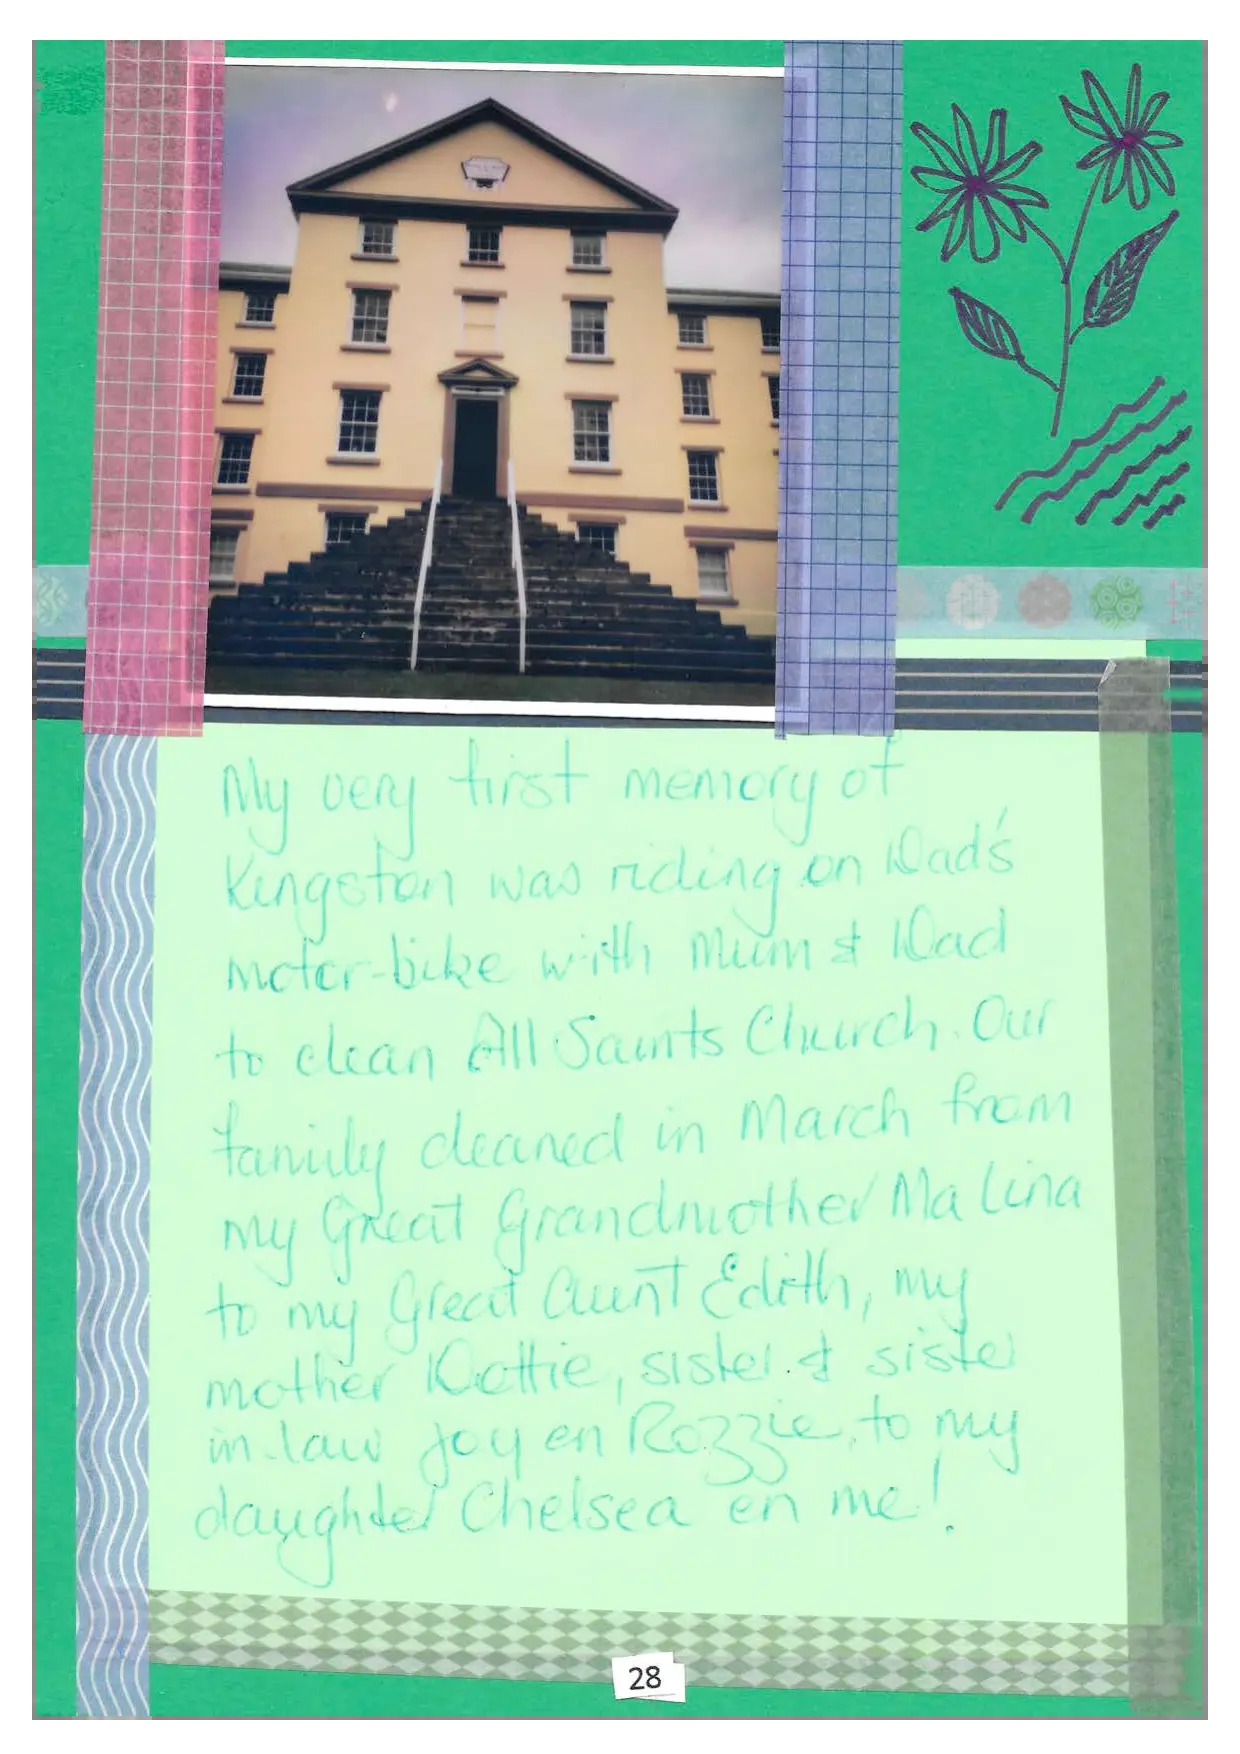 My very first memory of
Kingston was riding on Dad's
motor-bike with Mum & Dad
to clean All Saints Church. Our
family cleaned in March from
my Great Grandmother Ma Lina
to my Great Aunt Edith, my
mother Dottie, sister & sister
in-law Joy en Rozzie, to my
daughter Chelsea en me!
28